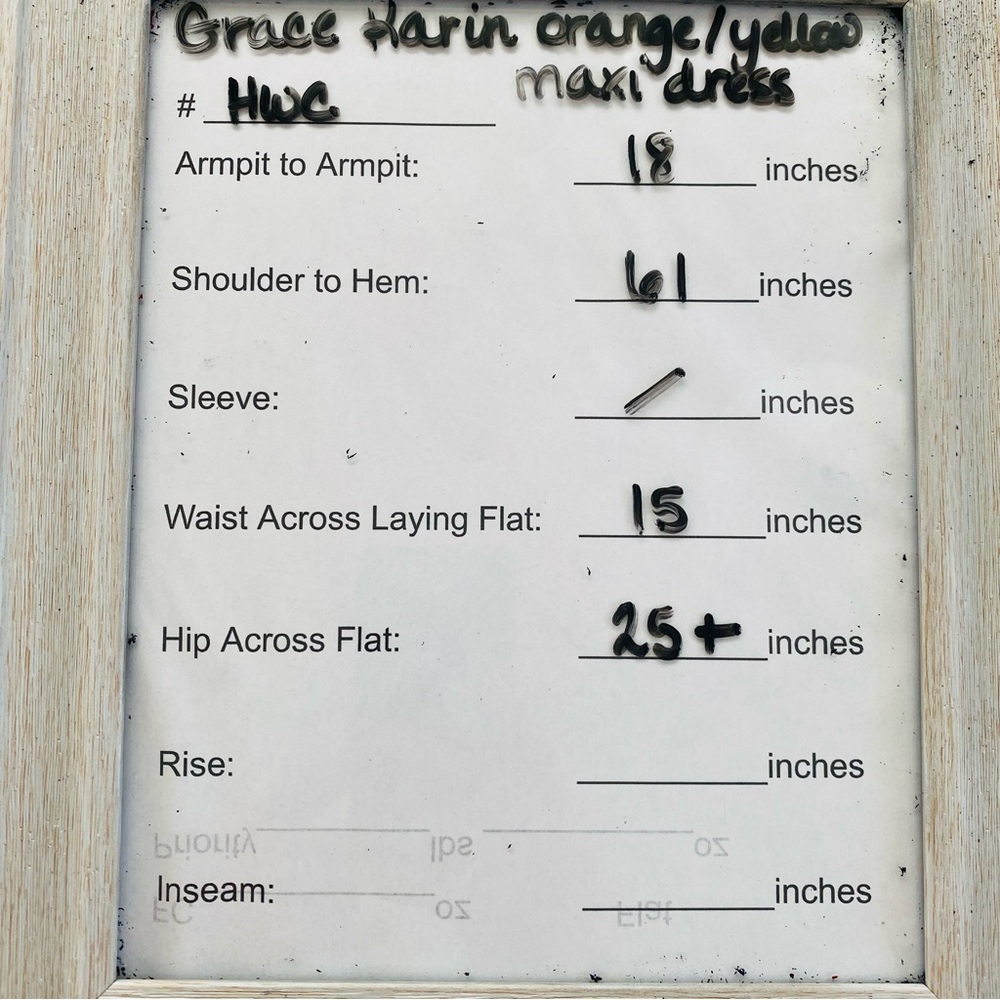 Grace Karin orange/yellow
maxi dress
# HWC
Armpit to Armpit: 18 inches
Shoulder to Hem: 61 inches
Sleeve: / inches
Waist Across Laying Flat: 15 inches
Hip Across Flat: 25+ inches
Rise: inches
Priority lbs oz
Inseam: inches
FC oz Flat